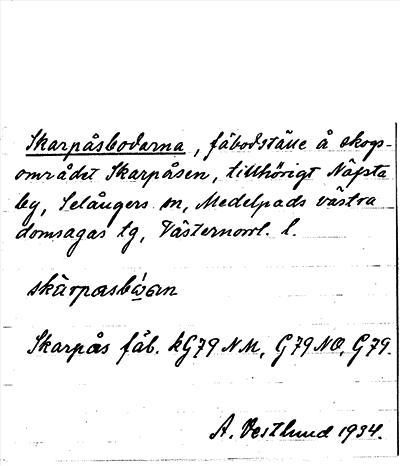 Skarpåsbodarna, fäbodställe å skogs-
området Skarpåsen, tillhörigt Näfsta
by, Selångers sn, Medelpads västra
domsagas tg, Västernorrl. l.
Skarpås fäb. kG79 NM, G79 NO, G79.
A. Vestlund 1934.